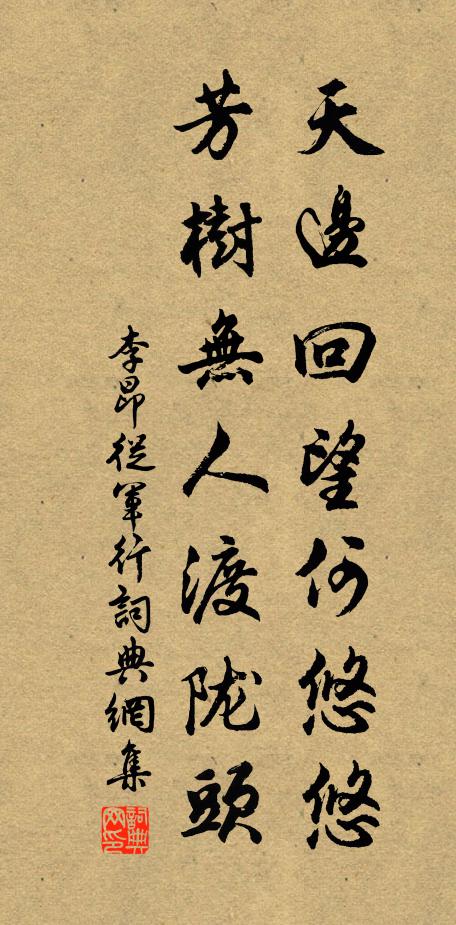 天邊回望何悠悠
芳樹無人渡陇頭
李昂從軍行詞典網集
詞典網印